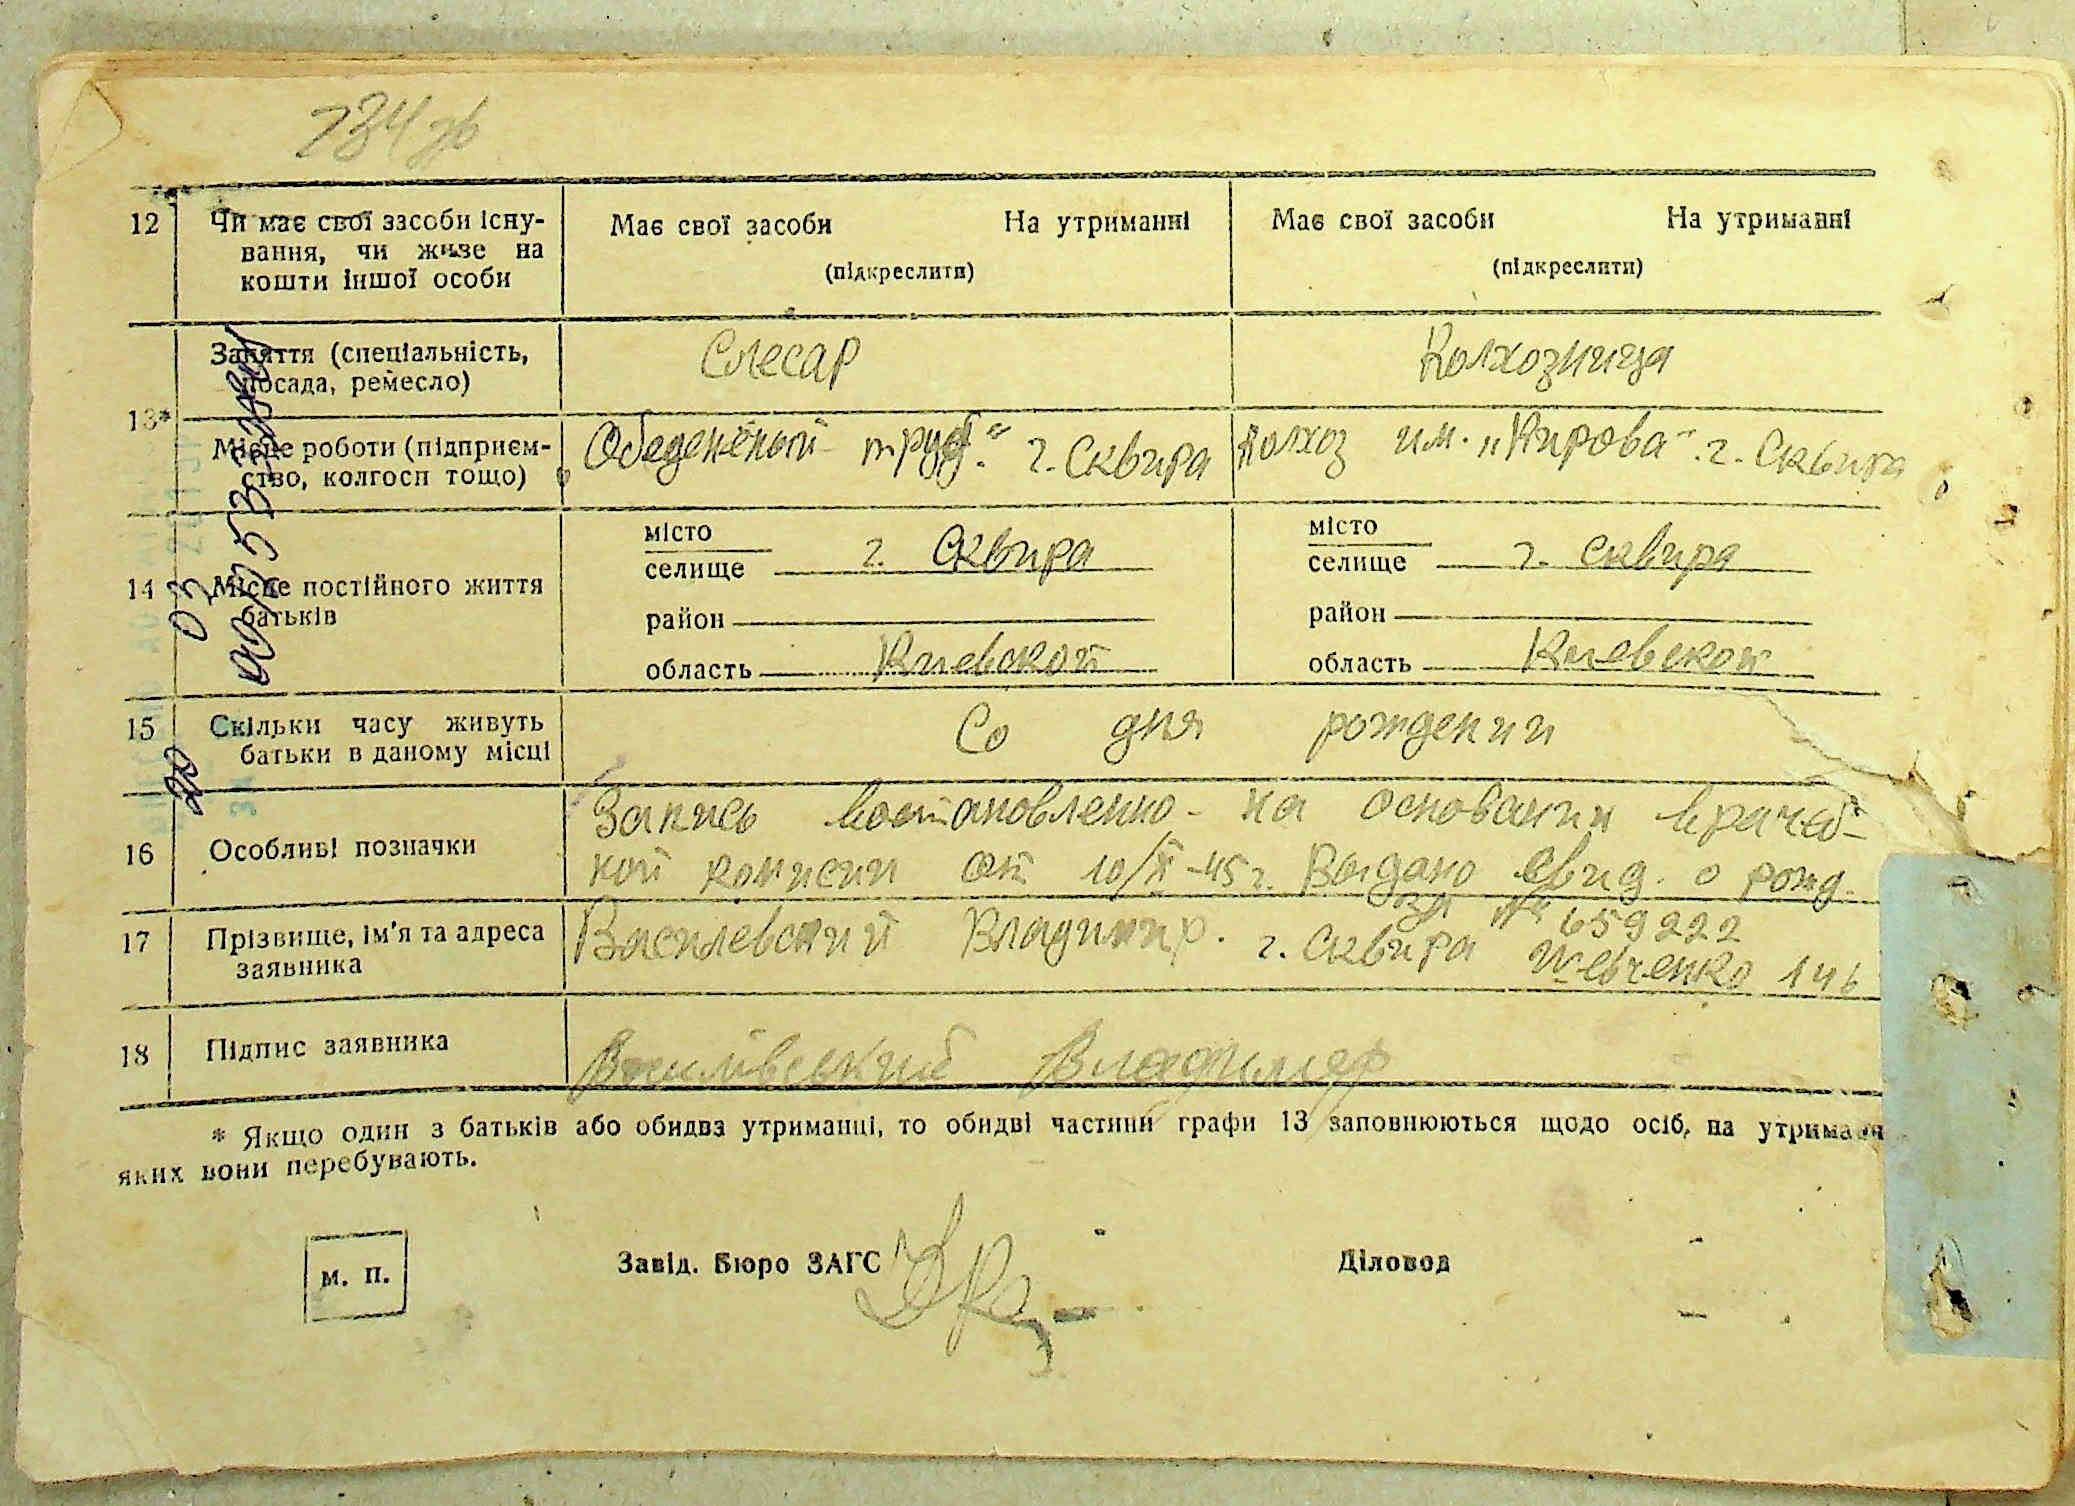 734 зв
12 Чи має свої засоби існу- Має свої засоби На утриманні Має свої засоби На утриманні
вання, чи живе на (підкреслити) (підкреслити)
кошти іншої особи
Заняття (спеціальність, Слесар Колхозница
посада, ремесло)
13*
Місце роботи (підприєм- „Обеденёный труд" г. Сквира колхоз им. „Кирова". г. Сквира
ство, колгосп тощо)
місто місто
селище г. Сквира селище г. Сквира
14 Місце постійного життя
батьків район район
область Киевской область Киевской
15 Скільки часу живуть Со дня рождении
батьки в даному місці
Запись востановленно - на основании врачеб-
16 Особливі позначки
ной комисии от 10/X-45 г. Выдано свид. о рожд.
ЗЛ № 659222
17 Прізвище, ім'я та адреса Василевский Владимир. г. Сквира Шевченко 146
заявника
18 Підпис заявника Василівський Владимер
* Якщо один з батьків або обидва утриманці, то обидві частини графи 13 заповнюються щодо осіб, на
яких вони перебувають.
м. п. Завід. Бюро ЗАГС Діловод